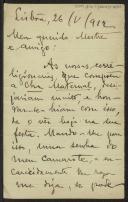 Lisboa, 26/V/912
Meu querido Mestre
e amigo:
As nossas corre-
ligionarias, que compoem
a Obra Maternal, dese-
jariam muito, e hon-
rar-se-hiam com isso,
de o vêr hoje na sua
festa. Mando-lhe por
isso, uma senha do
meu camarote, e en-
carecidamente lhe ro-
que seja, se pode